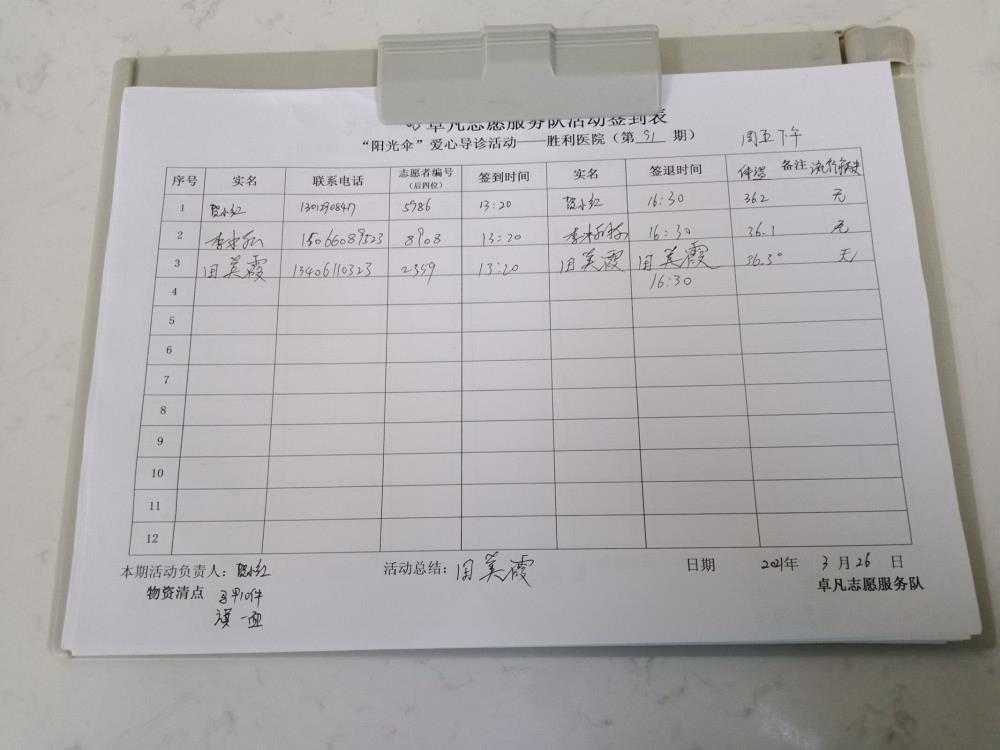 卓凡志愿服务队活动签到表
“阳光伞”爱心导诊活动——胜利医院（第 51 期） 周五下午
序号 实名 联系电话 志愿者编号（后四位） 签到时间 实名 签退时间 体温 备注
1 贺小红 5986 13:20 贺小红 16:30 36.2 无
2 15066089523 8908 13:20 16:30 36.1 无
3 周美霞 13406110323 2359 13:20 周美霞 周美霞 16:30 36.3° 无
4
5
6
7
8
9
10
11
12
本期活动负责人：贺小红 活动总结：周美霞 日期 2021年 3 月 26 日
物资清点 马甲10件 卓凡志愿服务队
旗一面